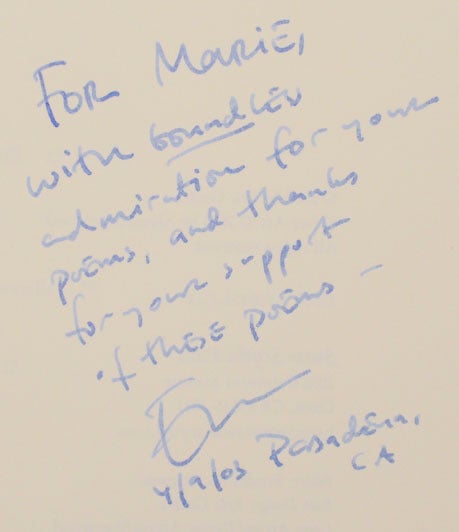 FOR MARIE,
with boundless
admiration for your
poems, and thanks
for your support
of these poems —
4/9/03 Pasadena,
CA